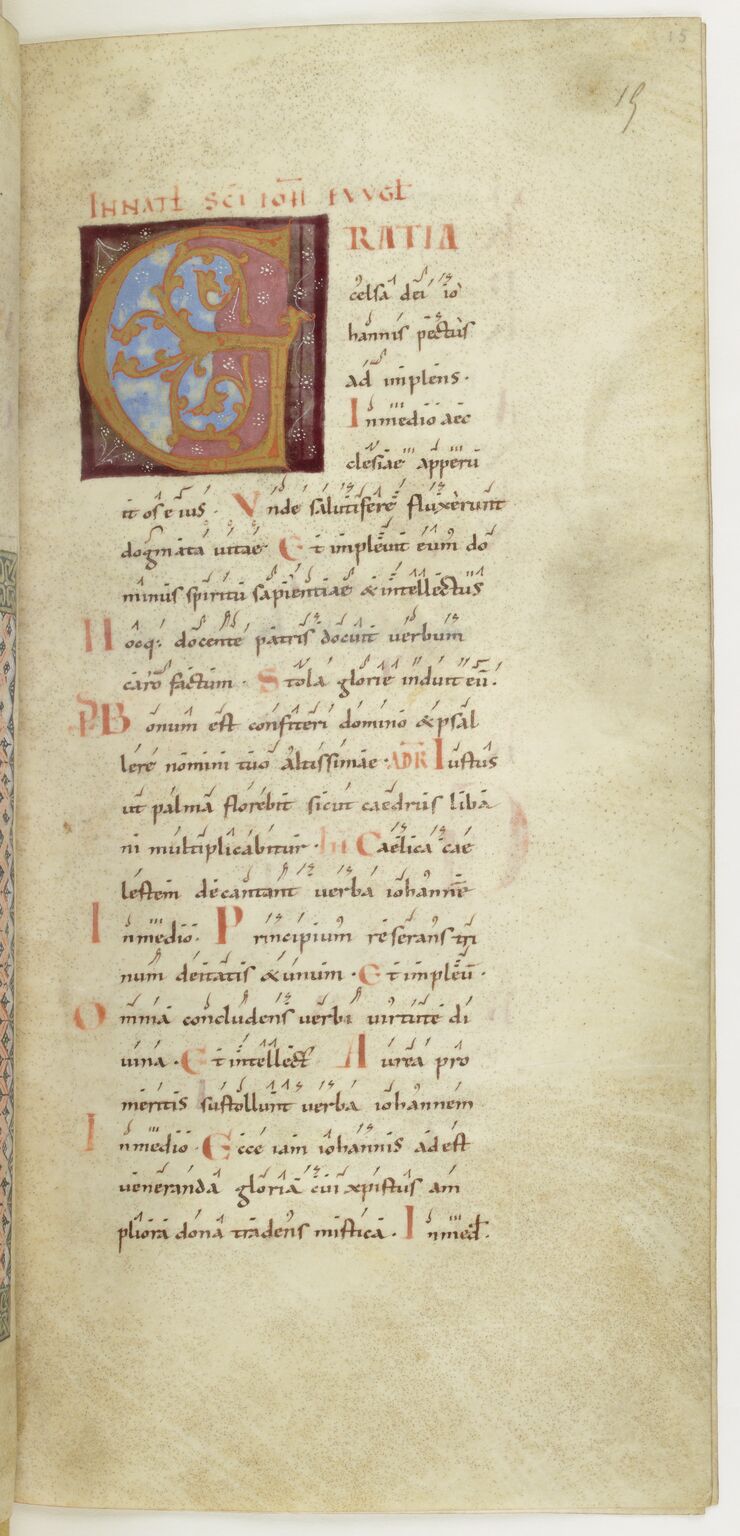 15
15
IN NAT̄ SC̄I IOH̄ EVVGL̄
GRATIA
celsa dei io
hannis pectus
ad implens.
In medio aec
clesiae apperu
it os eius. Unde salutifere fluxerunt
dogmata uitae Et impleuit eum do
minus spiritu sapientiae & intellectus
Hocq: docente patris docuit uerbum
caro factum. Stola glorie induit eū.
PS Bonum est confiteri domino & psal
lere nomini tuo altissimae. ADR Iustus
ut palma florebit sicut caedrus liba
ni multiplicabitur. Caelica cae
lestem decantant uerba iohannē
In medio. Principium reserans tri
num deitatis & unum. Et impleū.
Omnia concludens uerbi uirtute di
uina. Et intellect Aurea pro
meritis sustollunt uerba iohannem
In medio. Ecce iam iohannis adest
ueneranda gloria cui xpistus am
pliora dona tradens mistica. In med̄.